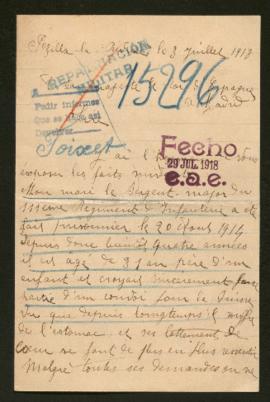 Pezilla la Rivière le 3 juillet 1918
REPATRIACION
MILITAR
15296
A
Pedir informes
Madrid
Sire
Fecho
29 JUL. 1918
e.a.e.
ai l'
exposer les faits
Mon mari le Sergent-major du
Régiment d'Infanterie a été
fait prisonnier le 20 Août 1914
Depuis donc bientôt quatre années
il est âgé de 31 ans père d'un
enfant et croyait sincèrement faire
partie d'un convoi pour la Suisse
Vu que depuis longtemps il souffre
de l'estomac et ses battements de
cœur se font de plus en plus ressentir
Malgré toutes ses demandes on ne